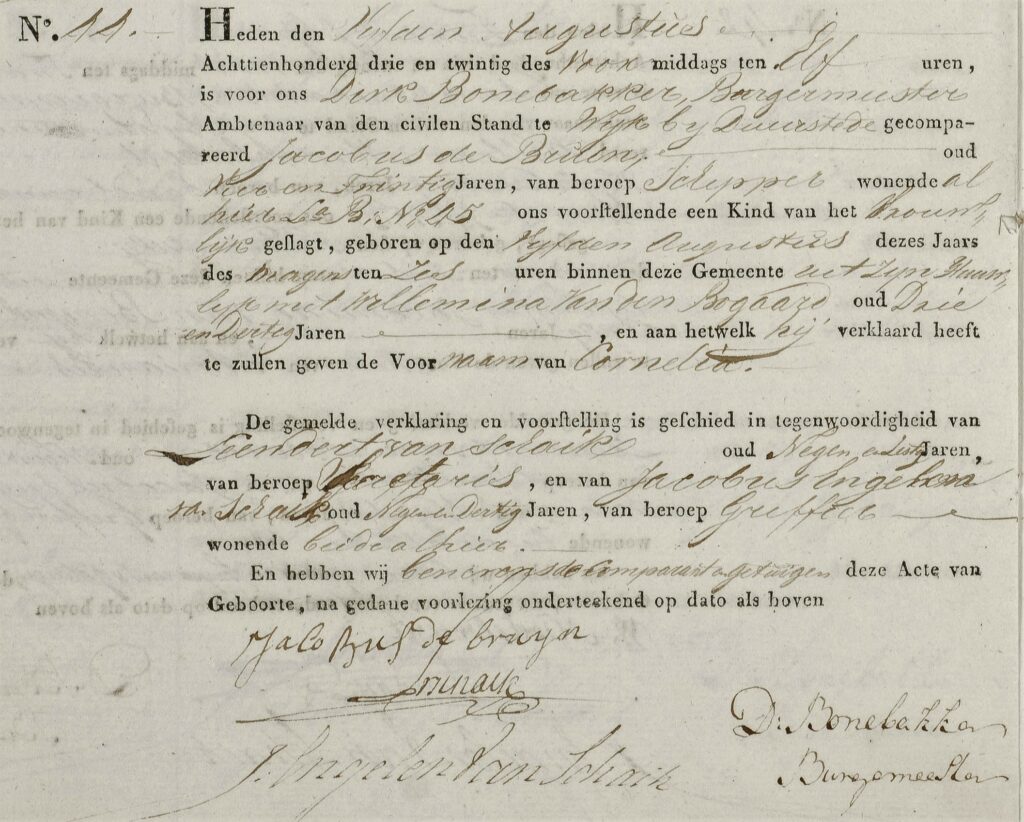 No. 44.
Heden den Augustus
Achttienhonderd drie en twintig des Voor middags ten Elf uren,
is voor ons Dirk Bonebakker, Burgermeester
Ambtenaar van den civilen Stand te Wyk by Duurstede gecompa-
reerd Jacobus de Bruen, oud
Vier en Jaren, van beroep Schipper wonende al
hier La B: No 45 ons voorstellende een Kind van het Vrouw-
lijk geslagt, geboren op den Vyfden Augustus dezes Jaars
des Morgens ten Zes uren binnen deze Gemeente uit Zyn Huuw-
lijk met Willemina Van den Bogaard oud Drie
en Dertig Jaren , en aan hetwelk hij verklaard heeft
te zullen geven de Voor naam van Cornelia.
De gemelde verklaring en voorstelling is geschied in tegenwoordigheid van
Leendert van Schaik oud Negen en Jaren,
van beroep , en van Jacobus Engelen
van Schaik oud Negen en Dertig Jaren, van beroep Griffier
wonende beide alhier.
En hebben wij Comparant getuigen deze Acte van
Geboorte, na gedane voorlezing onderteekend op dato als boven
Jacobus de bruyn
J. Engelen Van Schaik
D: Bonebakker
Burgemeester